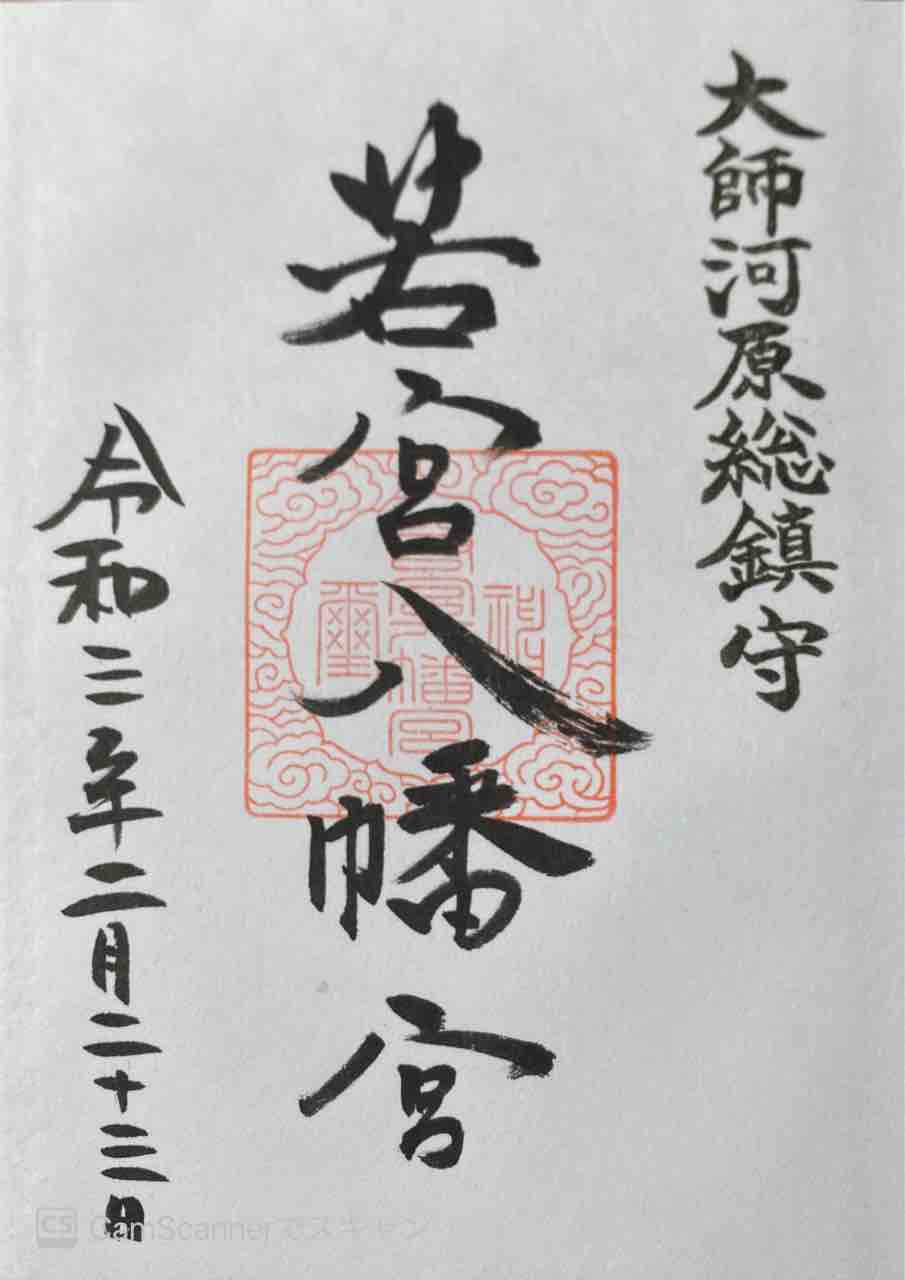 大師河原総鎮守
若宮八幡宮
令和三年二月二十三日
CS CamScannerでスキャン